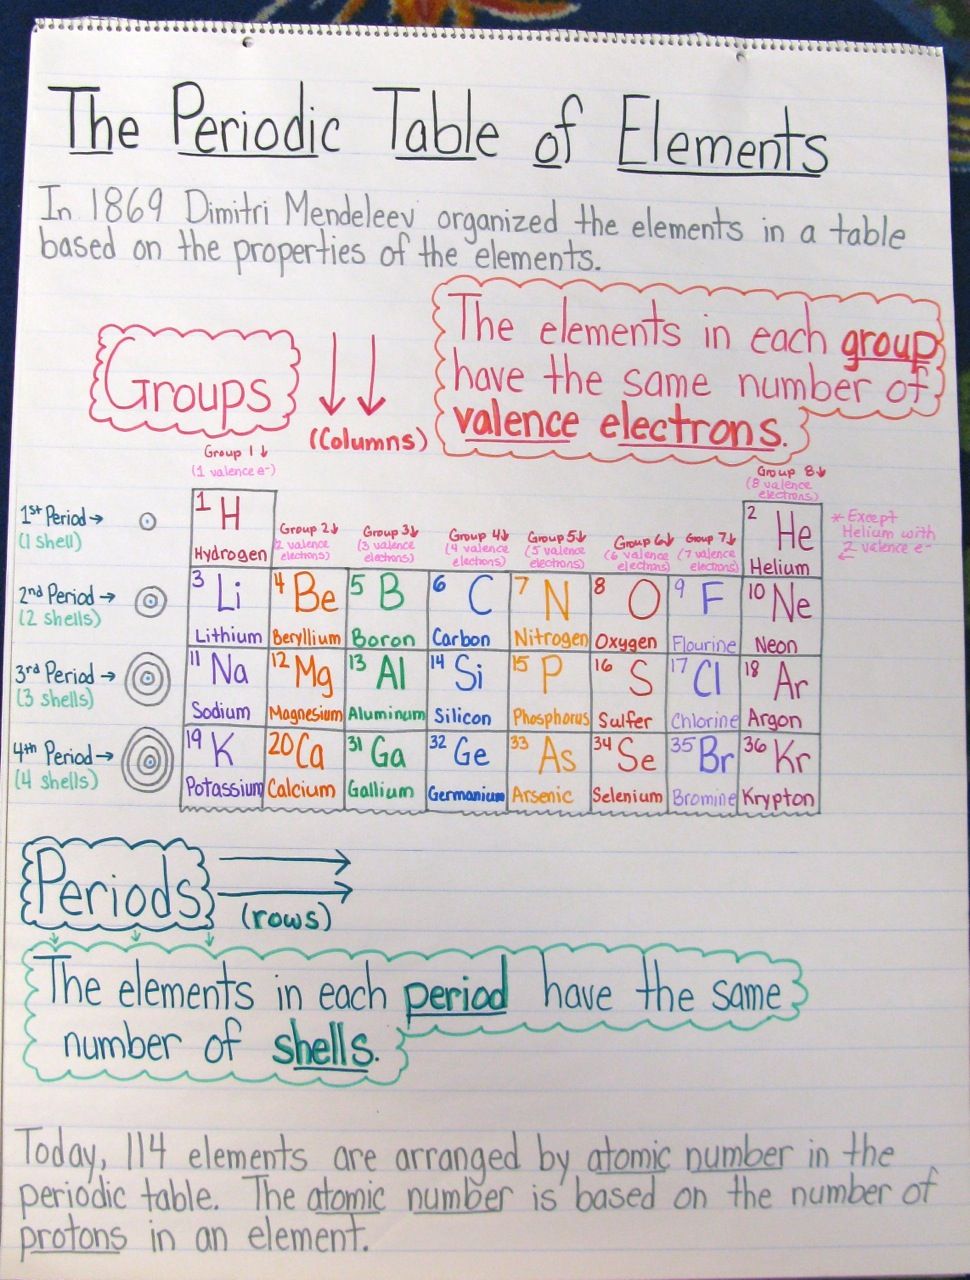 The Periodic Table of Elements
In 1869 Dimitri Mendeleev organized the elements in a table
based on the properties of the elements.
The elements in each group
have the same number of
valence electrons.
Groups
(Columns)
Group 1↓
(1 valence e-)
Group 8↓
(8 valence
electrons)
1st Period→
(1 shell)
1 H
Hydrogen
Group 2↓
(2 valence
electrons)
Group 3↓
(3 valence
electrons)
Group 4↓
(4 valence
electrons)
Group 5↓
(5 valence
electrons)
Group 6↓
(6 valence
electrons)
Group 7↓
(7 valence
electrons)
2 He
Helium
*Except
Helium with
2 valence e-
←
2nd Period→
(2 shells)
3 Li 4 Be 5 B 6 C 7 N 8 O 9 F 10 Ne
Lithium Beryllium Boron Carbon Nitrogen Oxygen Flourine Neon
3rd Period→
(3 shells)
11 Na 12 Mg 13 Al 14 Si 15 P 16 S 17 Cl 18 Ar
Sodium Magnesium Aluminum Silicon Phosphorus Sulfer Chlorine Argon
4th Period→
(4 shells)
19 K 20 Ca 31 Ga 32 Ge 33 As 34 Se 35 Br 36 Kr
Potassium Calcium Gallium Germanium Arsenic Selenium Bromine Krypton
Periods
(rows)
The elements in each period have the same
number of shells.
Today, 114 elements are arranged by atomic number in the
periodic table. The atomic number is based on the number of
protons in an element.